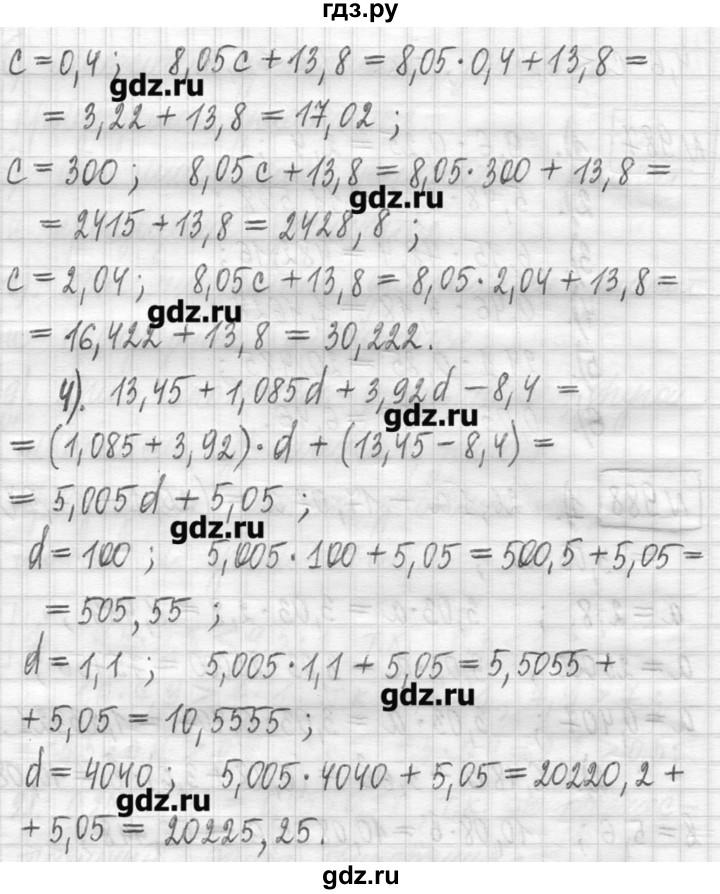 гдз.ру
c = 0,4 ; 8,05c + 13,8 = 8,05·0,4 + 13,8 =
gdz.ru
= 3,22 + 13,8 = 17,02 ;
c = 300 ; 8,05c + 13,8 = 8,05·300 + 13,8 =
gdz.ru
= 2415 + 13,8 = 2428,8 ;
c = 2,04 ; 8,05c + 13,8 = 8,05·2,04 + 13,8 =
gdz.ru
= 16,422 + 13,8 = 30,222.
4). 13,45 + 1,085d + 3,92d − 8,4 =
gdz.ru
= (1,085 + 3,92)·d + (13,45 − 8,4) =
= 5,005d + 5,05 ;
gdz.ru
d = 100 ; 5,005·100 + 5,05 = 500,5 + 5,05 =
= 505,55 ;
d = 1,1 ; 5,005·1,1 + 5,05 = 5,5055 +
gdz.ru
+ 5,05 = 10,5555 ;
d = 4040 ; 5,005·4040 + 5,05 = 20220,2 +
gdz.ru
+ 5,05 = 20225,25.
gdz.ru